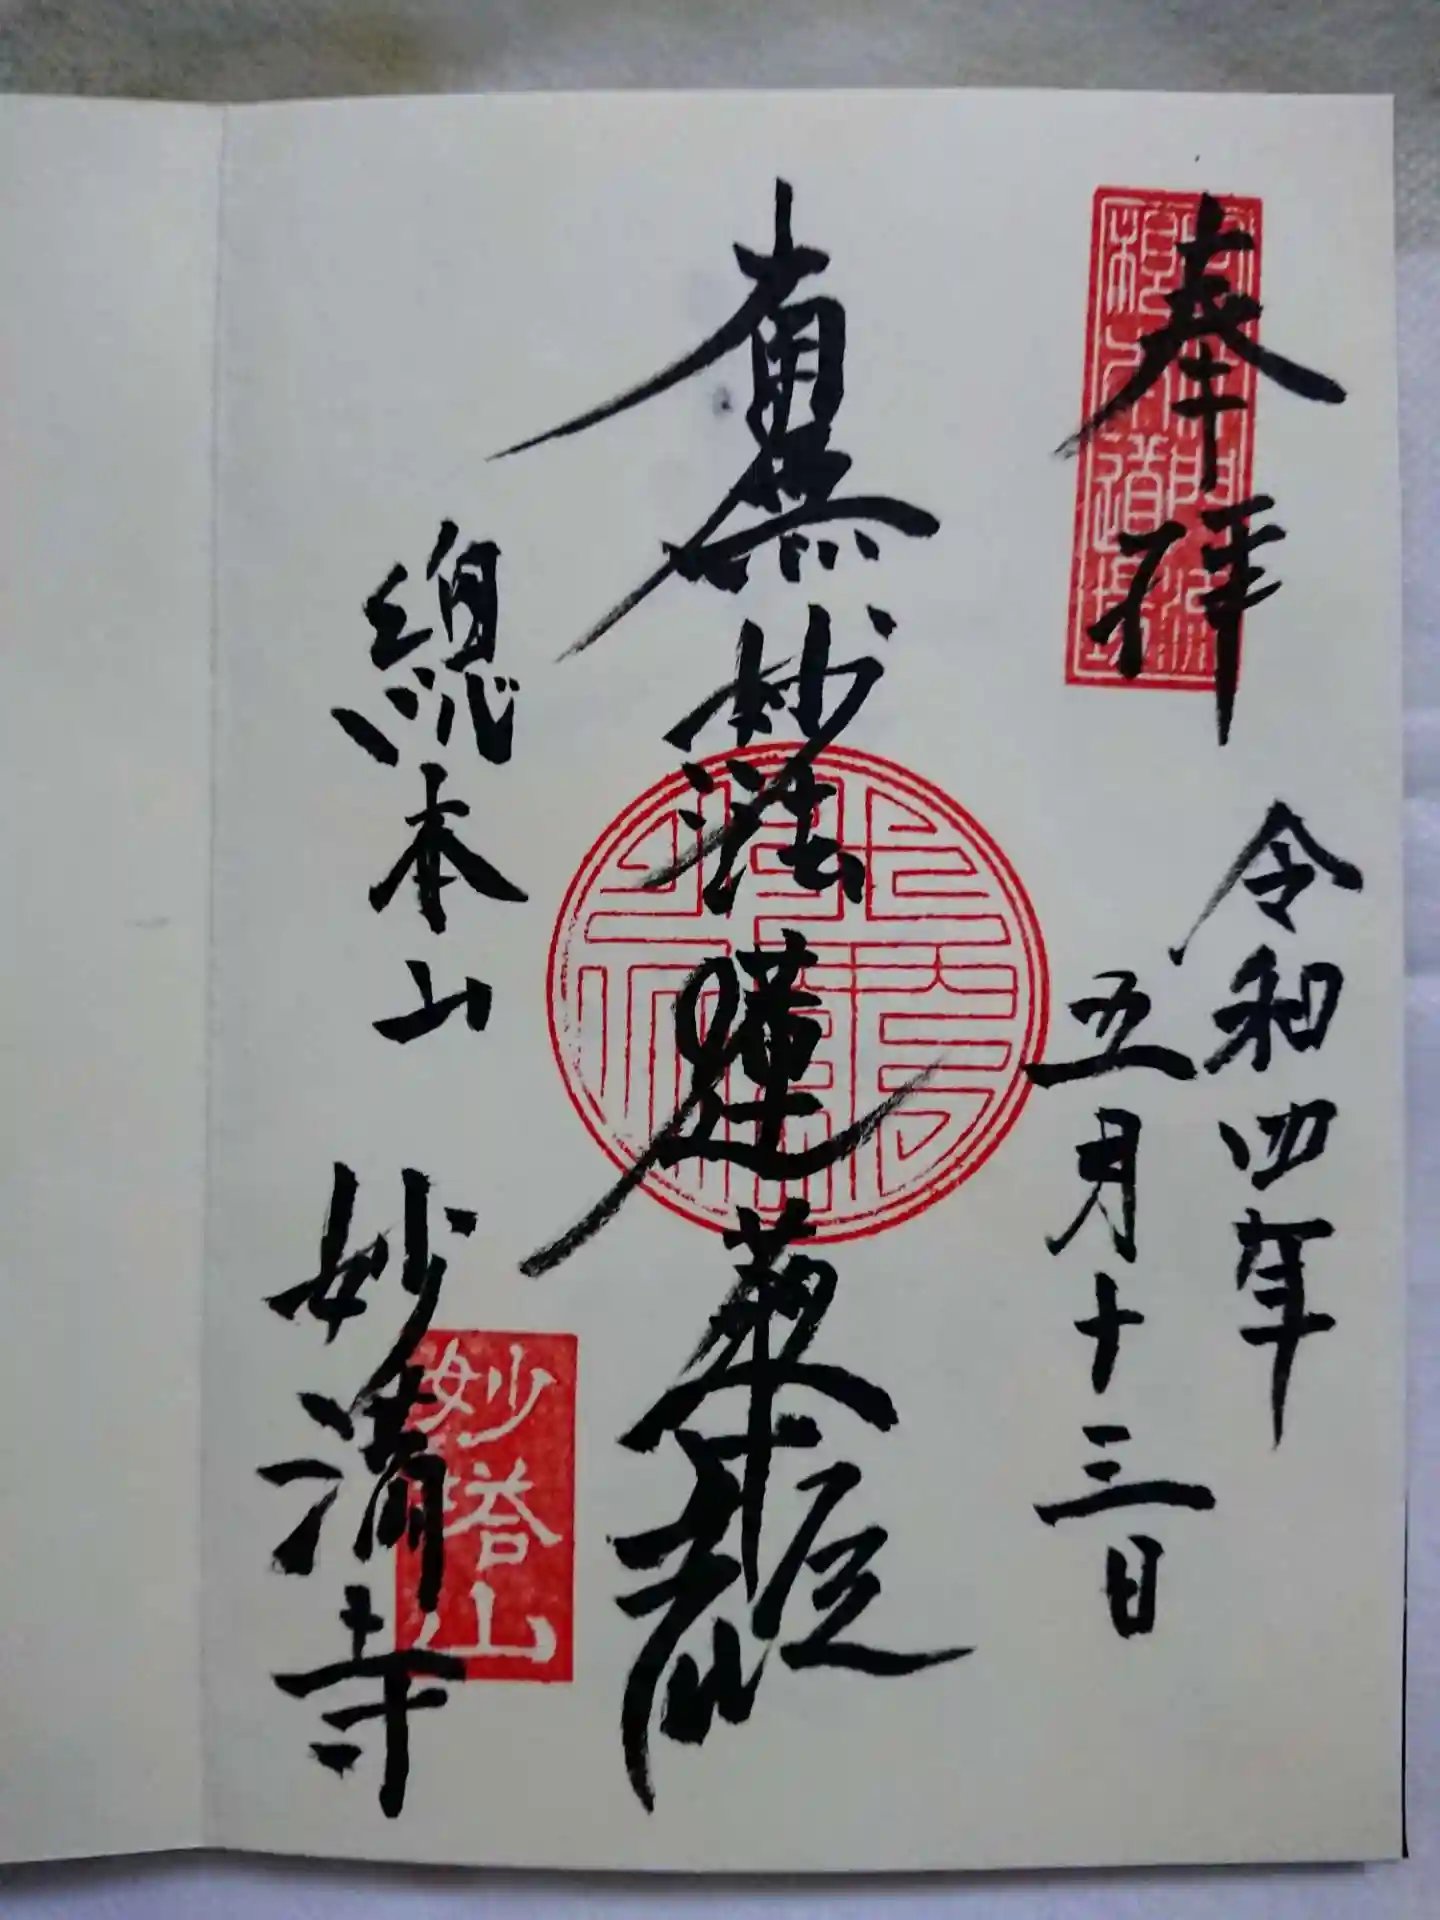 奉拝
令和四年
五月十三日
南無妙法蓮華経
總本山
妙満寺
妙塔山
根本道場